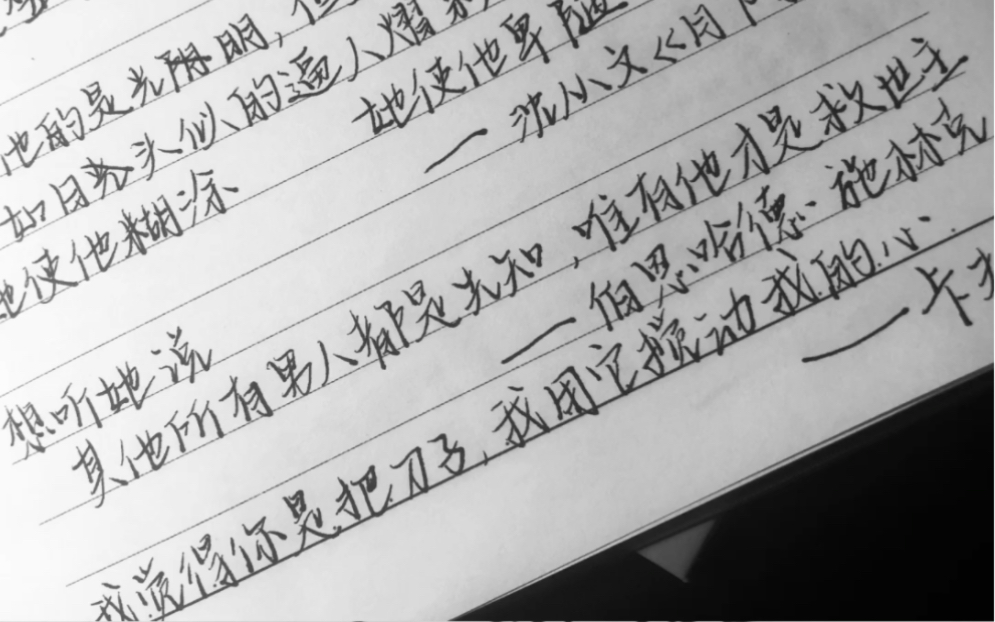 他的是光阴明，但
如日光头似的逼人耀
她使他糊涂 她使他卑陋
— 沈从文《月
想听她说
其他所有男人都是先知，唯有他才是救世主
— 伯恩哈德·施林克
我觉得你是把刀子，我用它搅动我的心.
— 卡